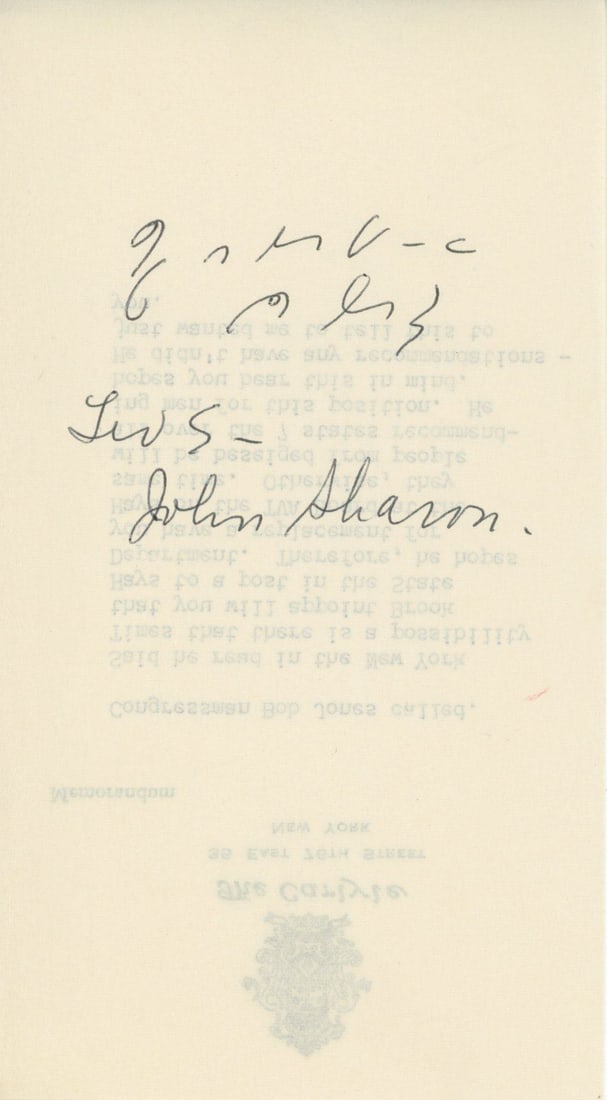 John Sharon.
The Carlyle
35 East 76th Street
New York
Memorandum
Congressman Bob Jones called.
Said he read in the New York
Times that there is a possibility
that you will appoint Brook
Hays to a post in the State
Department. Therefore, he hopes
you have a replacement for
Hays on the TVA Board at the
same time. Otherwise, they
will be beseiged from people
all over the 7 states recommend-
ing men for this position. He
hopes you bear this in mind.
He didn't have any recommendations -
just wanted me to tell this to
you.